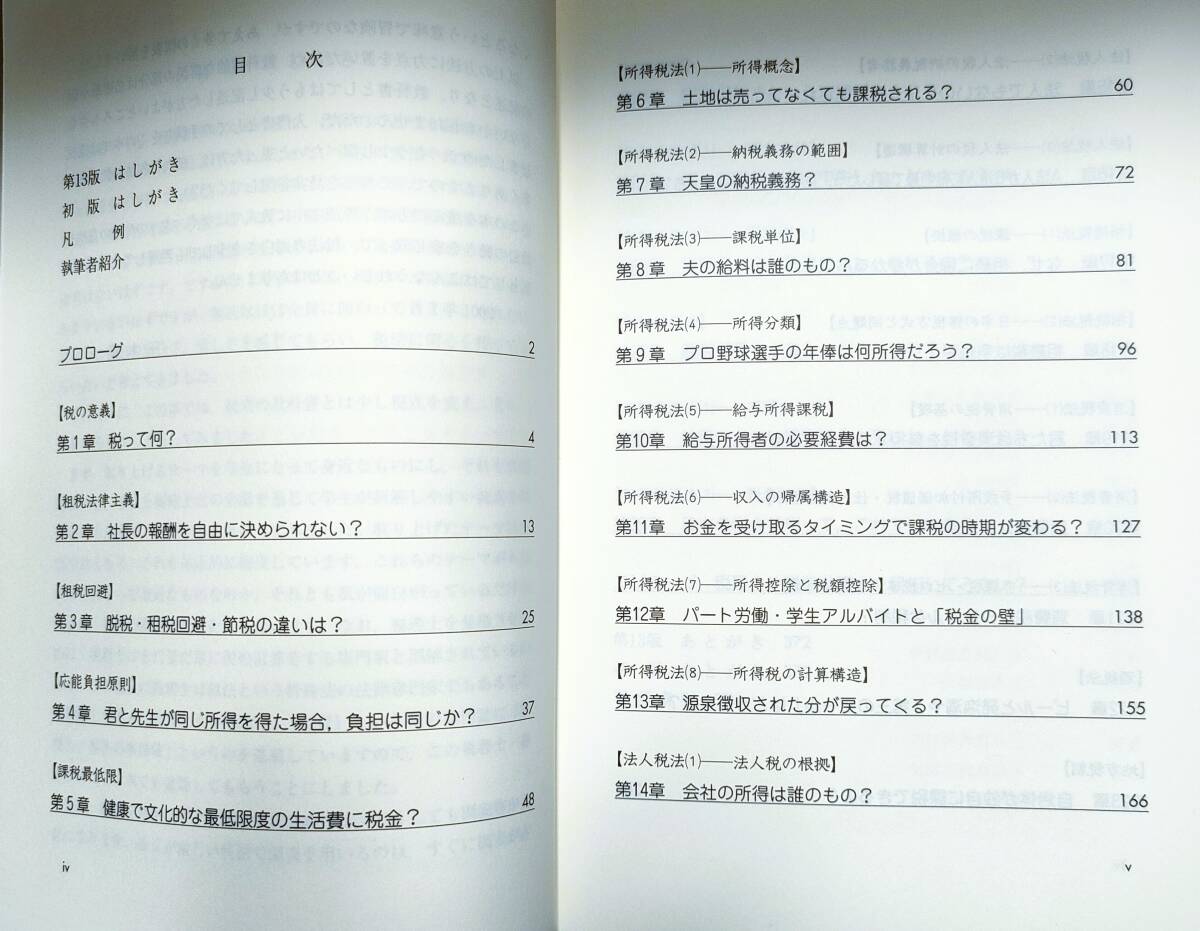 目次
第13版 はしがき
初版 はしがき
凡例
執筆者紹介
プロローグ 2
【税の意義】
第1章 税って何？ 4
【租税法律主義】
第2章 社長の報酬を自由に決められない？ 13
【租税回避】
第3章 脱税・租税回避・節税の違いは？ 25
【応能負担原則】
第4章 君と先生が同じ所得を得た場合，負担は同じか？ 37
【課税最低限】
第5章 健康で文化的な最低限度の生活費に税金？ 48
iv
【所得税法(1)――所得概念】
第6章 土地は売ってなくても課税される？ 60
【所得税法(2)――納税義務の範囲】
第7章 天皇の納税義務？ 72
【所得税法(3)――課税単位】
第8章 夫の給料は誰のもの？ 81
【所得税法(4)――所得分類】
第9章 プロ野球選手の年俸は何所得だろう？ 96
【所得税法(5)――給与所得課税】
第10章 給与所得者の必要経費は？ 113
【所得税法(6)――収入の帰属構造】
第11章 お金を受け取るタイミングで課税の時期が変わる？ 127
【所得税法(7)――所得控除と税額控除】
第12章 パート労働・学生アルバイトと「税金の壁」 138
【所得税法(8)――所得税の計算構造】
第13章 源泉徴収された分が戻ってくる？ 155
【法人税法(1)――法人税の根拠】
第14章 会社の所得は誰のもの？ 166
v